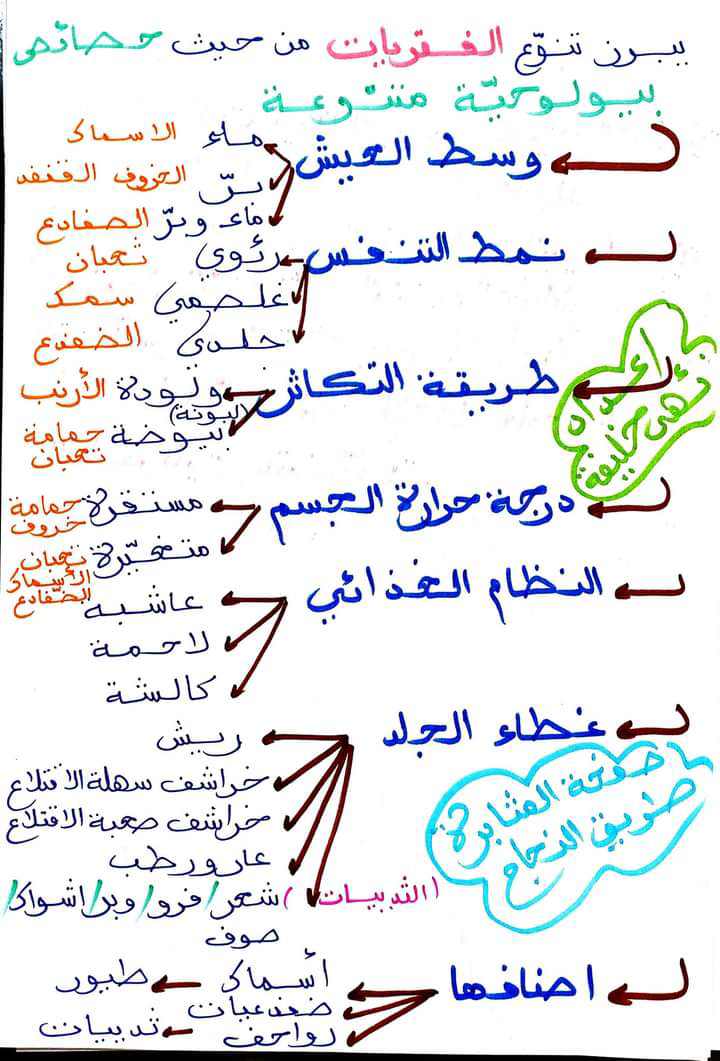 يبرز تنوّع الفقريات من حيث خصائص
بيولوجيّة متنوعة
وسط العيش
ماء الاسماك
برّ الخروف القنفد
ماء وبرّ الضفادع
نمط التنفس
رئوي ثعبان
غلصمي سمك
جلدي الضفدع
طريقة التكاثر
ولودة الأرنب
(لبونة)
بيوضة حمامة
ثعبان
إعداد
نهى خليفة
درجة حرارة الجسم
مستقرة حمامة
خروف
متغيّرة ثعبان
الأسماك
الضفادع
النظام الغذائي
عاشبة
لاحمة
كالشة
غطاء الجلد
ريش
خراشف سهلة الاقتلاع
خراشف صعبة الاقتلاع
عار ورطب
(الثدييات) شعر/ فرو/ وبر/ اشواك/
صوف
صفحة المثابرة
طريق النجاح
اصنافها
أسماك طيور
ضفدعيات
زواحف ثدييات